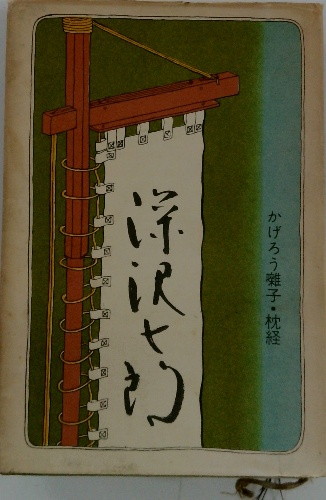 かげろう囃子・枕経
深沢七郎